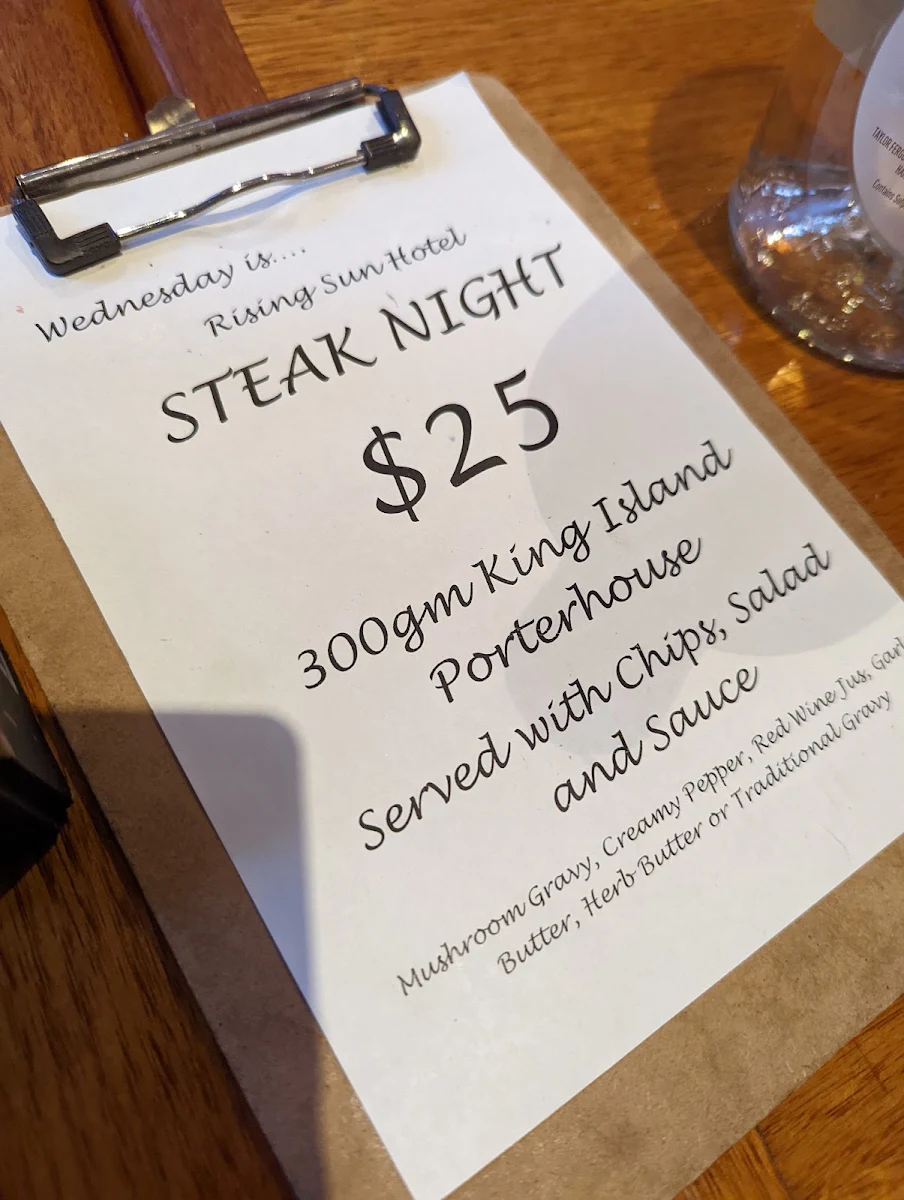 Wednesday is....
Rising Sun Hotel
STEAK NIGHT
$25
300gm King Island
Porterhouse
Served with Chips, Salad
and Sauce
Mushroom Gravy, Creamy Pepper, Red Wine Jus,
Butter, Herb Butter or Traditional Gravy
TAYLOR
Contains